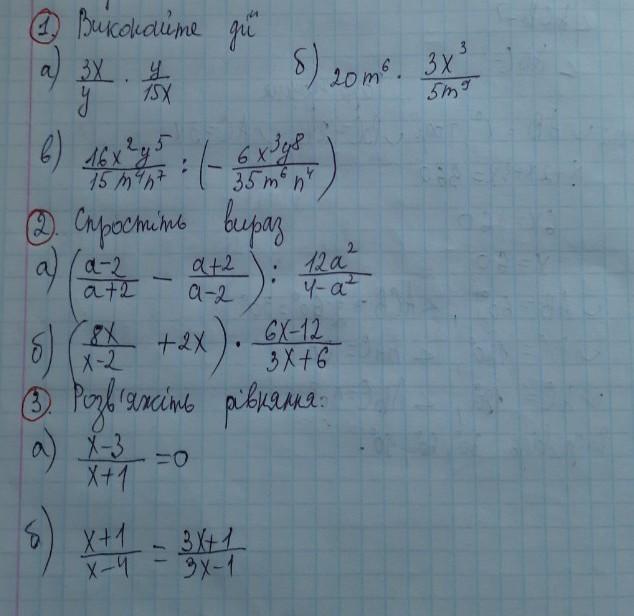 1. Виконайте дії
а) 3x/y · y/15x б) 20m⁶ · 3x³/5m⁹
в) 16x²y⁵/15m⁴n⁷ : (− 6x³y⁸/35m⁶n⁴)
2. Спростіть вираз
а) (a−2/a+2 − a+2/a−2) : 12a²/4−a²
б) (8x/x−2 + 2x) · 6x−12/3x+6
3. Розв'яжіть рівняння:
а) x−3/x+1 = 0
б) x+1/x−4 = 3x+1/3x−1